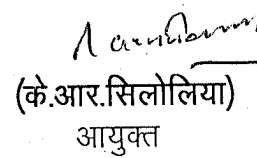 (के.आर.सिलोलिया)
आयुक्त